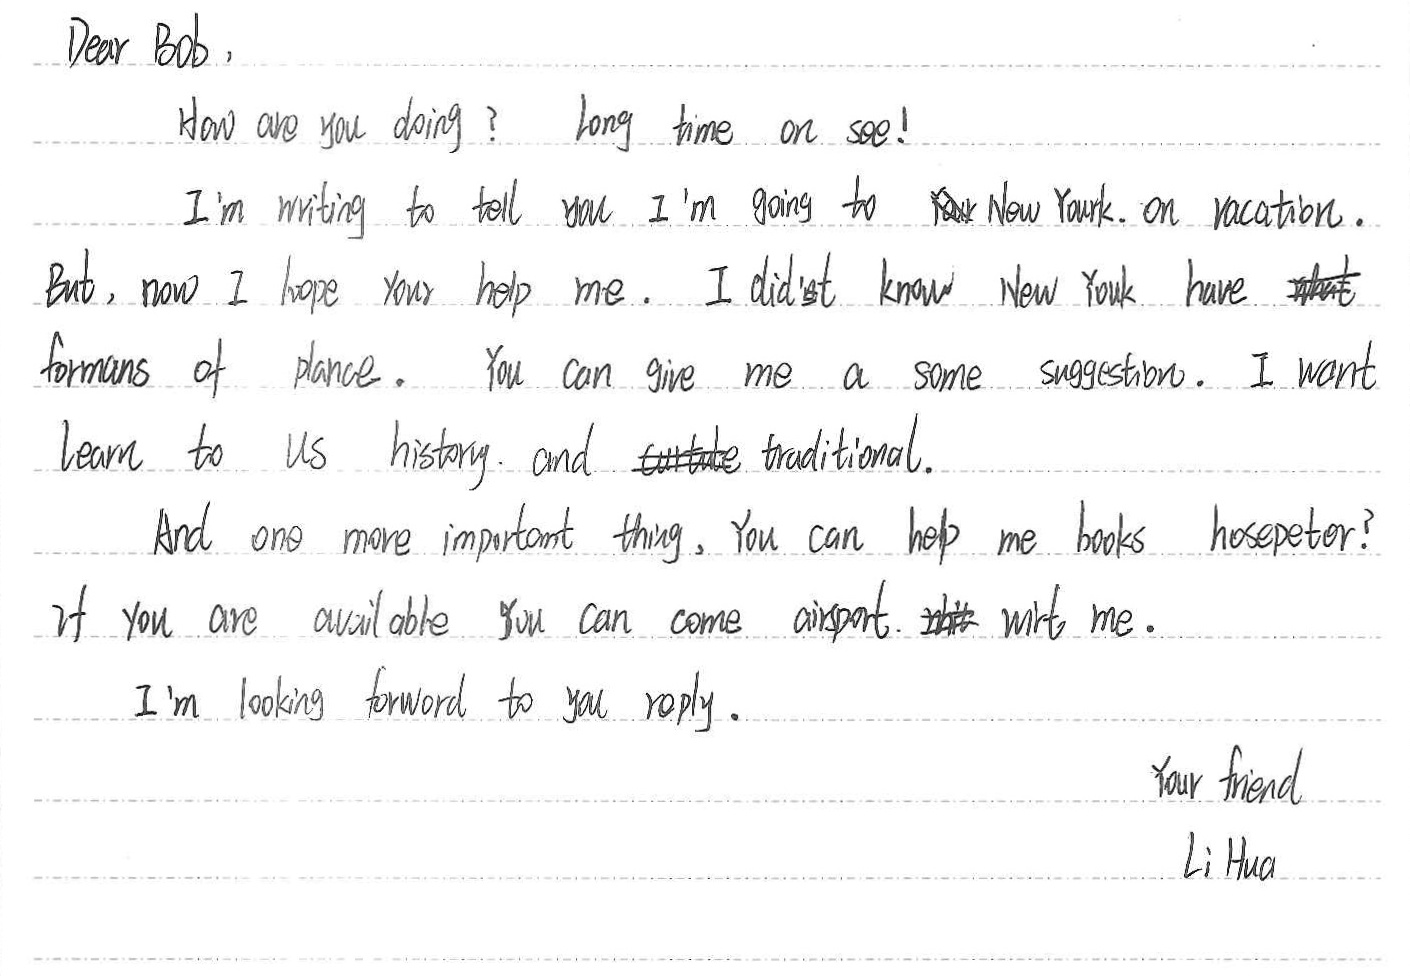 Dear Bob,
How are you doing? Long time on see!
I'm writing to tell you I'm going to New Yourk. on vacation.
But, now I hope your help me. I did'st know New Youk have
formans of plance. You can give me a some suggestion. I want
learn to Us history. and traditional.
And one more important thing, You can help me books hosepetor?
if you are available you can come airsport. wirt me.
I'm looking forword to you reply.
Your friend
Li Hua